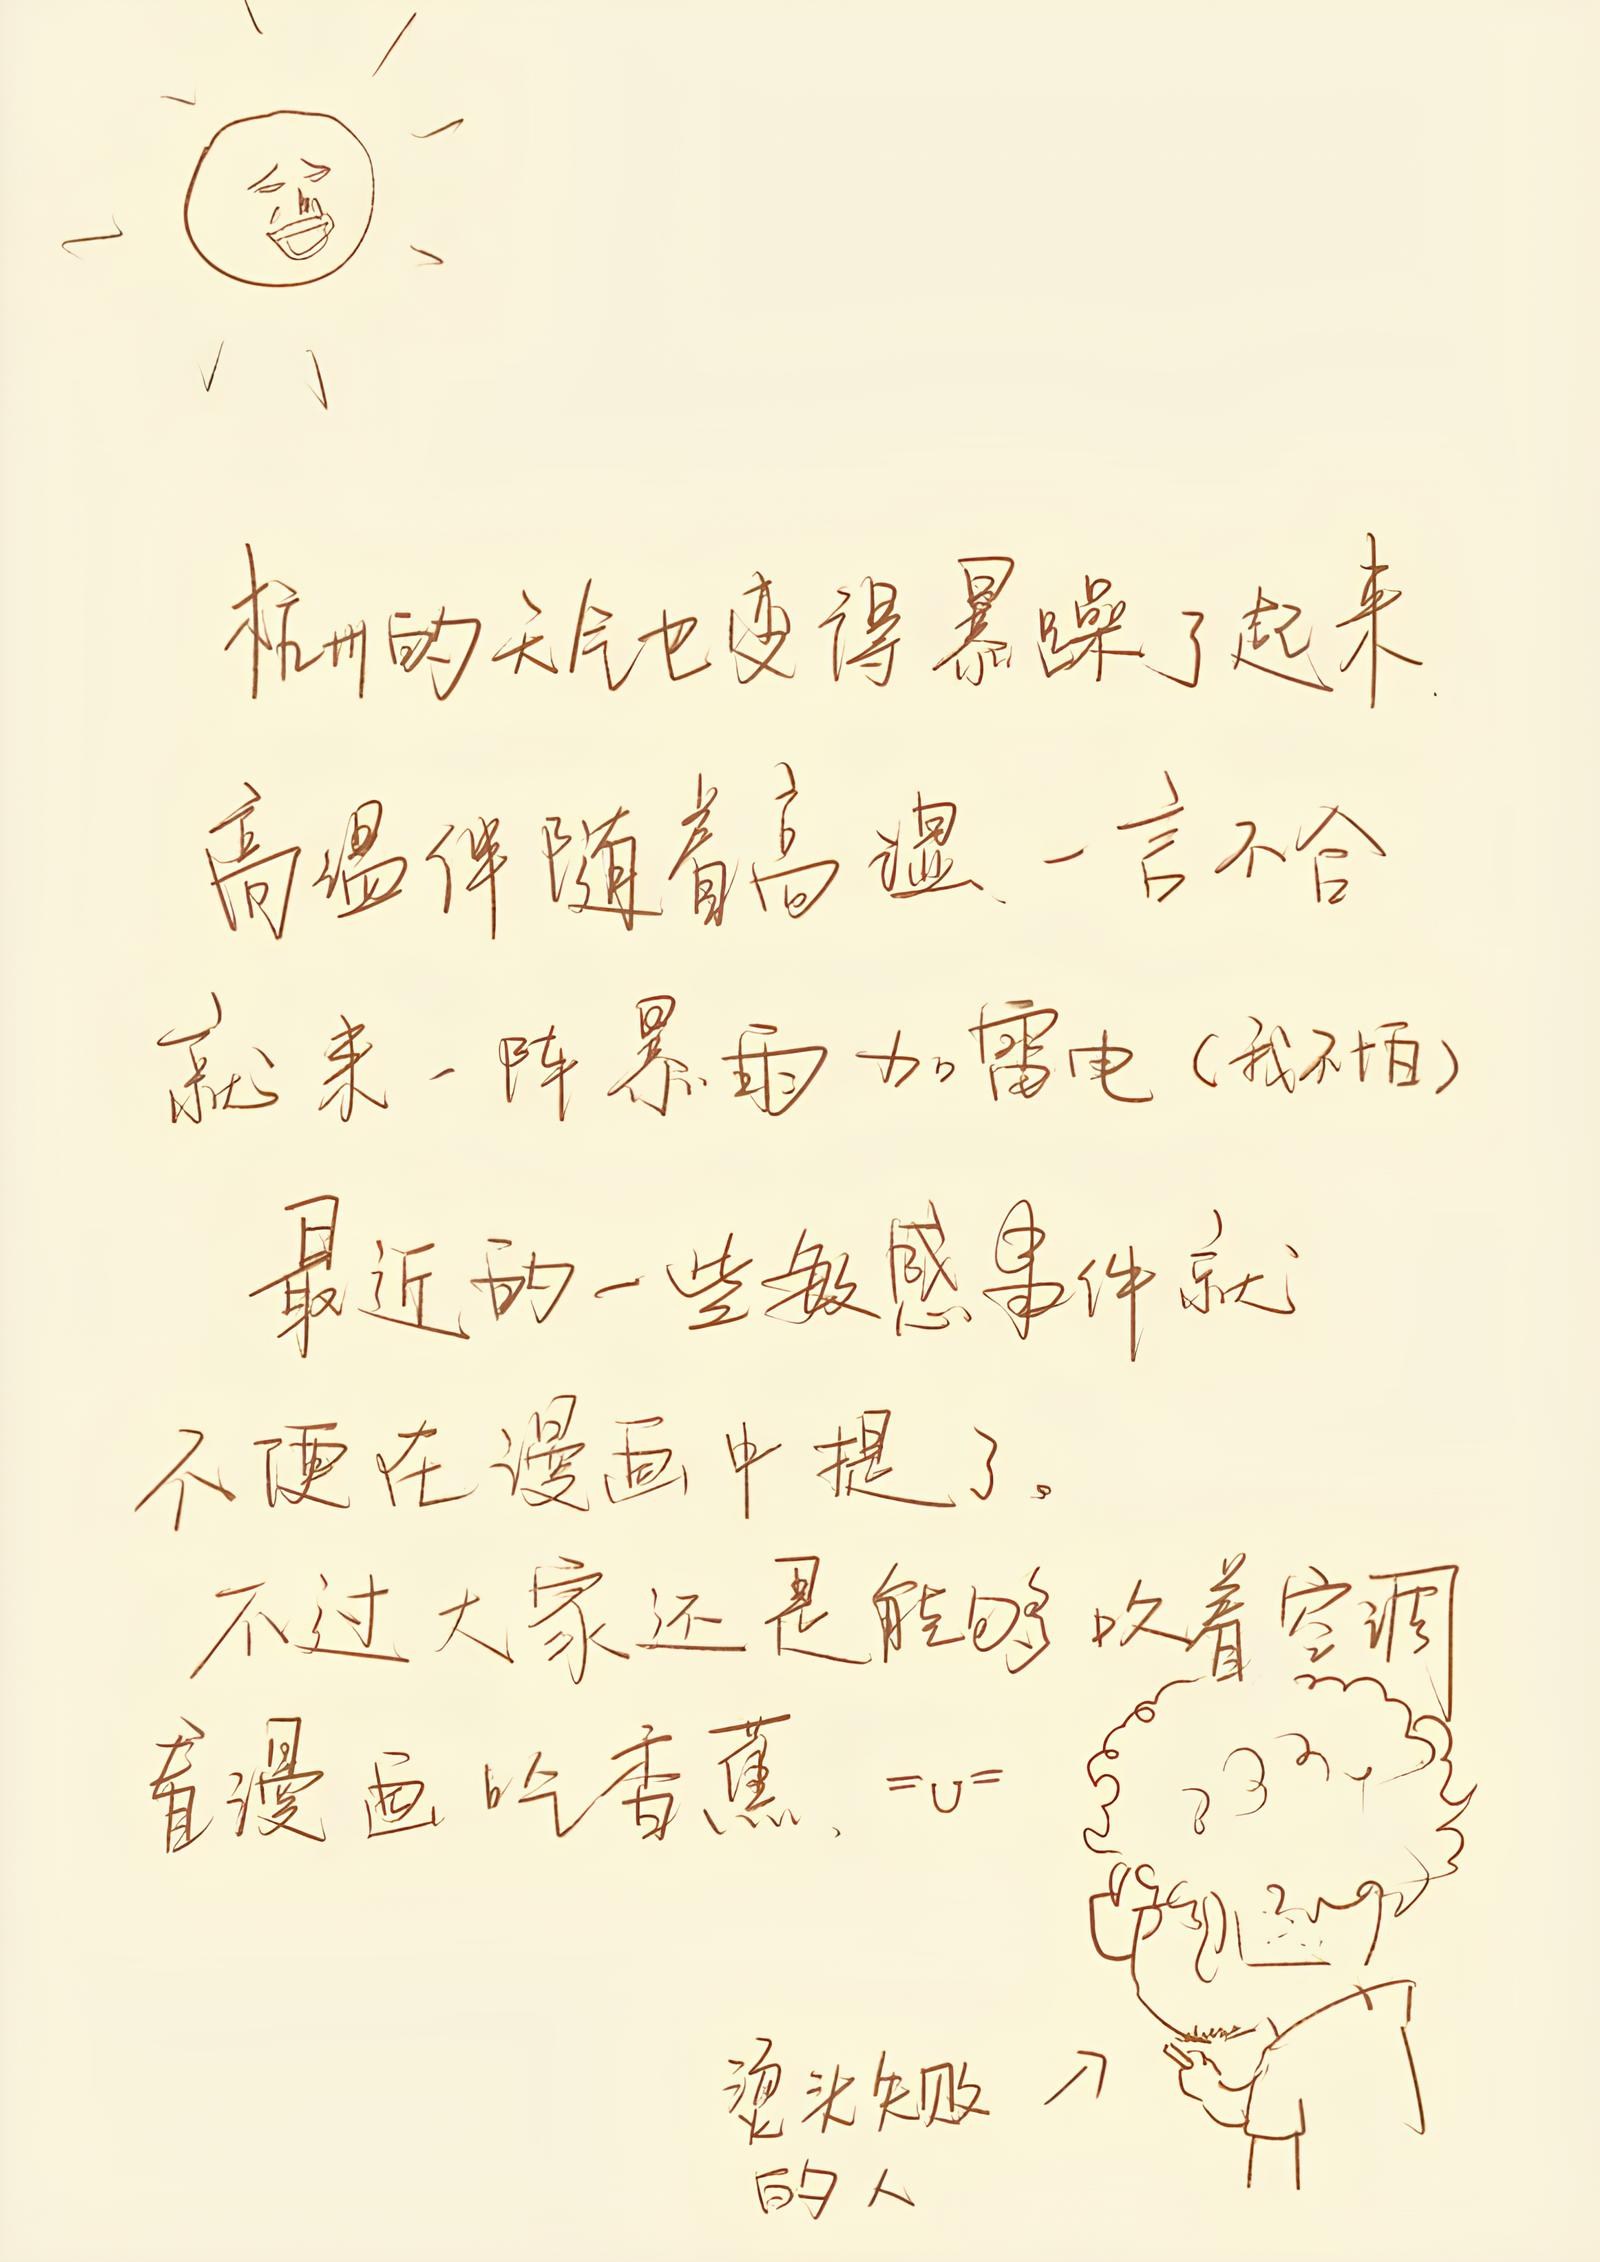 杭州的天气也变得暴躁了起来.
高温伴随着高湿、一言不合
就来一阵暴雨加雷电(我不怕)
最近的一些敏感事件就
不便在漫画中提了。
不过大家还是能够吹着空调
看漫画吃香蕉、=∪=
烫头失败
的人